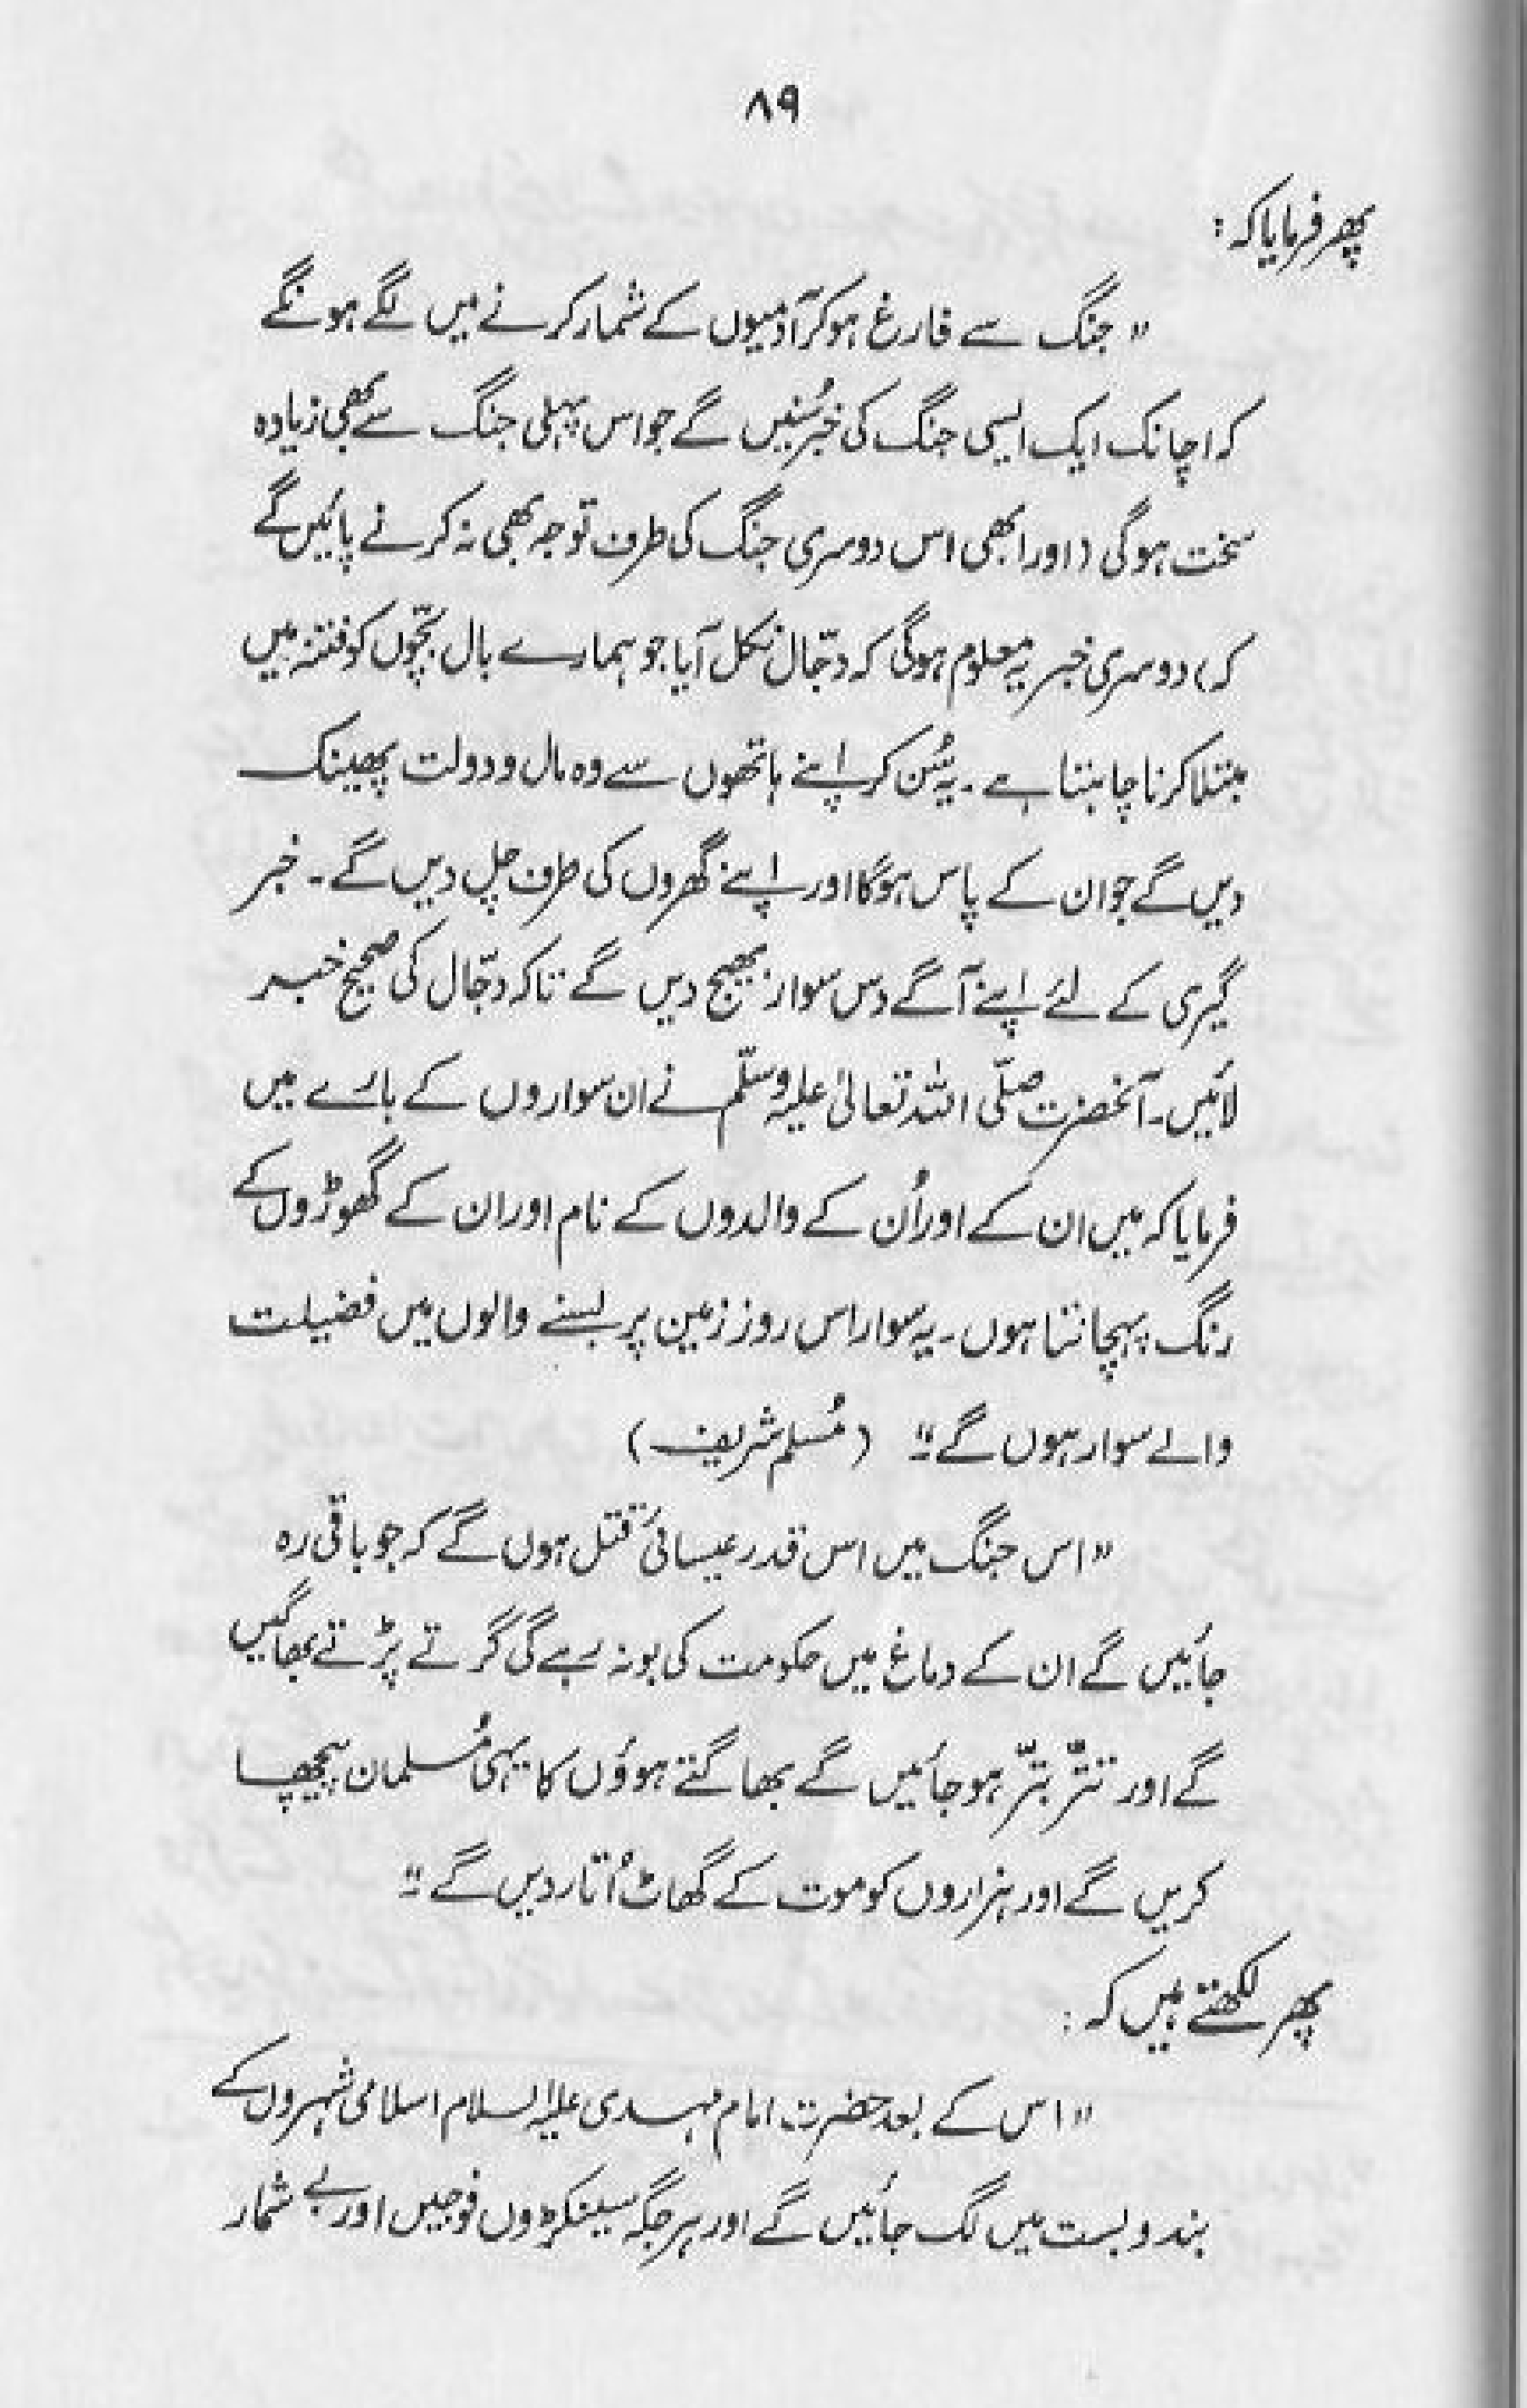 ۸۹
پھر فرمایا کہ :
" جنگ سے فارغ ہوکر آدمیوں کے شمار کرنے میں لگے ہونگے
کہ اچانک ایک ایسی جنگ کی خبر سُنیں گے جو اس پہلی جنگ سے بھی زیادہ
سخت ہوگی (اور ابھی اس دوسری جنگ کی طرف توجہ بھی نہ کرنے پائیں گے
کہ) دوسری خبر یہ معلوم ہوگی کہ دجّال نکل آیا جو ہمارے بال بچّوں کو فتنہ میں
مبتلا کرنا چاہتا ہے ۔ یہ سُن کر اپنے ہاتھوں سے وہ مال و دولت پھینک
دیں گے جو ان کے پاس ہوگا اور اپنے گھروں کی طرف چل دیں گے ۔ خبر
گیری کے لئے اپنے آگے دس سوار بھیج دیں گے تاکہ دجّال کی صحیح خبر
لائیں۔ آنحضرت صلّی اللہ تعالیٰ علیہ وسلّم نے ان سواروں کے بارے میں
فرمایا کہ میں ان کے اور اُن کے والدوں کے نام اور ان کے گھوڑوں کے
رنگ پہچانتا ہوں ۔ یہ سوار اس روز زمین پر بسنے والوں میں فضیلت
والے سوار ہوں گے ۔" (مُسلم شریف)
" اس جنگ میں اس قدر عیسائی قتل ہوں گے کہ جو باقی رہ
جائیں گے ان کے دماغ میں حکومت کی بو نہ رہے گی گرتے پڑتے بھاگیں
گے اور تتّر بتّر ہوجائیں گے بھاگتے ہوؤں کا یہی مُسلمان پیچھا
کریں گے اور ہزاروں کو موت کے گھاٹ اُتار دیں گے ۔"
پھر لکھتے ہیں کہ :
" اس کے بعد حضرت امام مہدی علیہ السلام اسلامی شہروں کے
بندوبست میں لگ جائیں گے اور ہر جگہ سینکڑوں فوجیں اور بے شمار